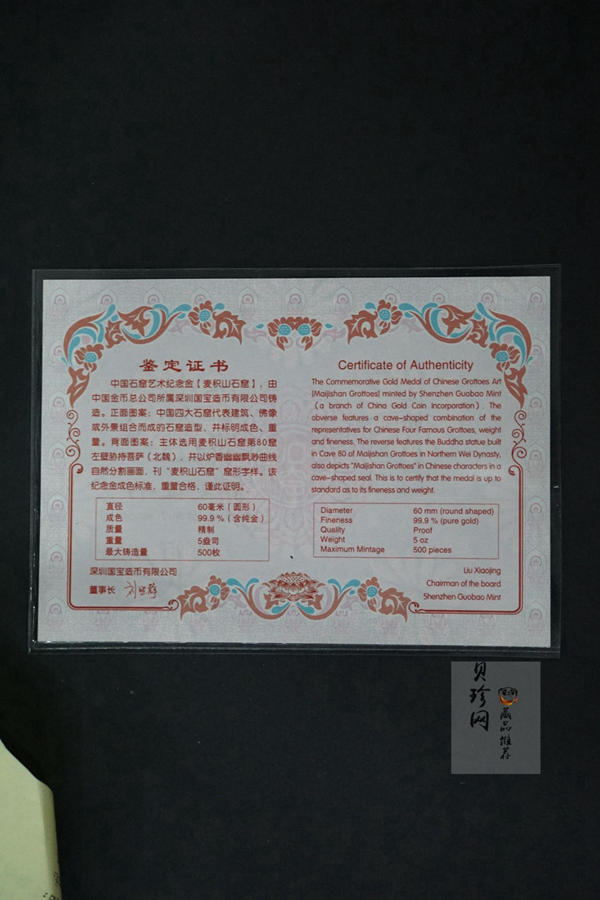 鉴定证书
中国石窟艺术纪念金【麦积山石窟】，由
中国金币总公司所属深圳国宝造币有限公司铸
造。正面图案：中国四大石窟代表建筑、佛像
或外景组合而成的石窟造型，并标明成色、重
量。背面图案：主体选用麦积山石窟第80窟
左壁胁持菩萨（北魏），并以炉香幽幽飘渺曲线
自然分割画面，刊“麦积山石窟”窟形字样。该
纪念金成色标准，重量合格，谨此证明。
直径 60毫米（圆形）
成色 99.9%（含纯金）
质量 精制
重量 5盎司
最大铸造量 500枚
深圳国宝造币有限公司
董事长
Certificate of Authenticity
The Commemorative Gold Medal of Chinese Grottoes Art
[Maijishan Grottoes] minted by Shenzhen Guobao Mint
(a branch of China Gold Coin Incorporation). The
obverse features a cave-shaped combination of the
representatives for Chinese Four Famous Grottoes, weight
and fineness. The reverse features the Buddha statue built
in Cave 80 of Maijishan Grottoes in Northern Wei Dynasty,
also depicts "Maijishan Grottoes" in Chinese characters in a
cave-shaped seal. This is to certify that the medal is up to
standard as to its fineness and weight.
Diameter 60 mm (round shaped)
Fineness 99.9 % (pure gold)
Quality Proof
Weight 5 oz
Maximum Mintage 500 pieces
Liu Xiaojing
Chairman of the board
Shenzhen Guobao Mint
贝珍网
藏品推荐